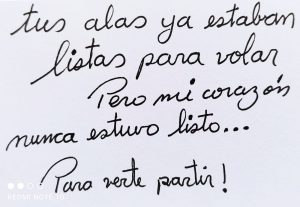 tus alas ya estaban
listas para volar
Pero mi corazón
nunca estuvo listo...
Para verte partir!
REDMI NOTE 10